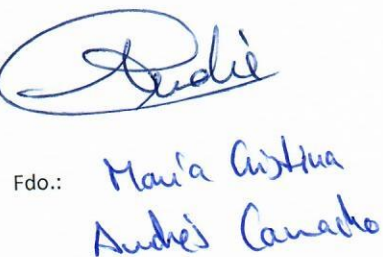 Fdo.: María Cristina
Andrés Camacho